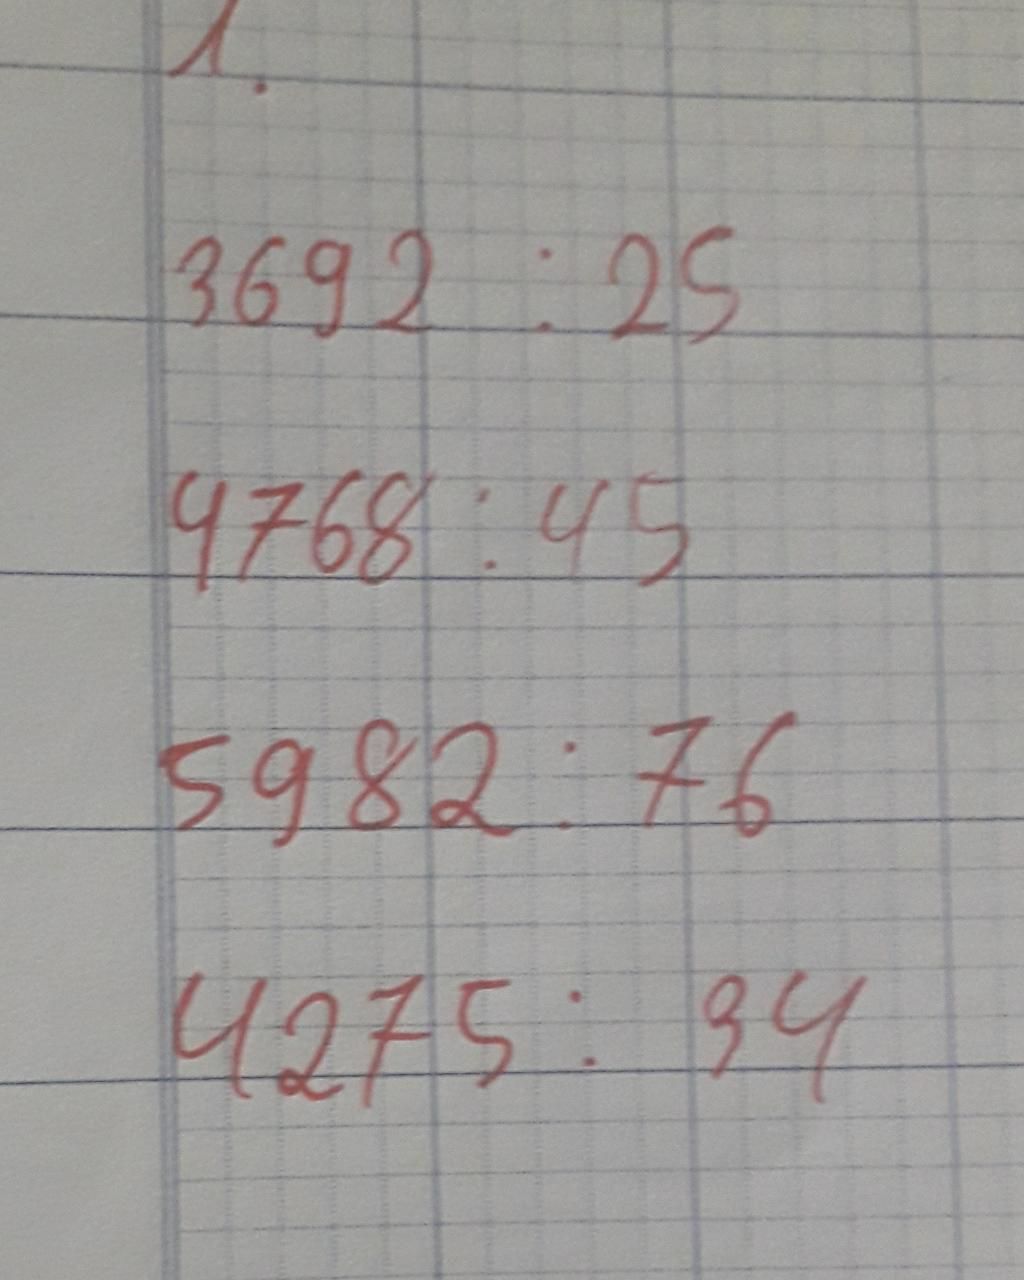 1.
3692 : 25
4768 : 45
5982 : 76
4275 : 34